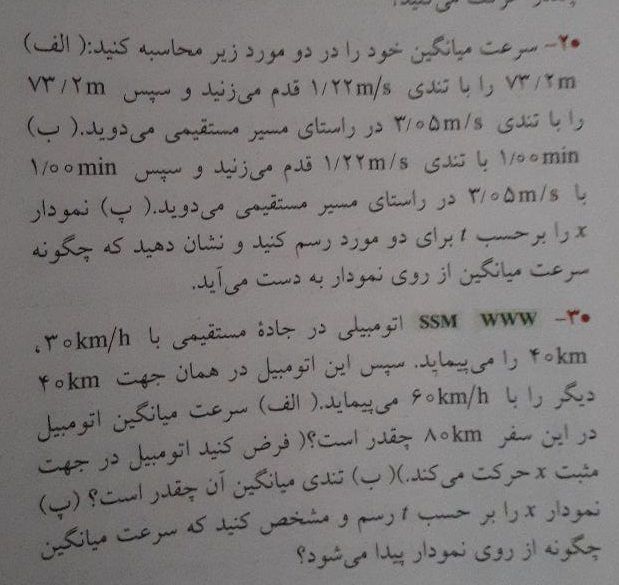 •۲- سرعت میانگین خود را در دو مورد زیر محاسبه کنید:( الف)
۷۳/۲m را با تندی ۱/۲۲m/s قدم می‌زنید و سپس ۷۳/۲m
را با تندی ۳/۰۵m/s در راستای مسیر مستقیمی می‌دوید.( ب)
۱/۰۰min با تندی ۱/۲۲m/s قدم می‌زنید و سپس ۱/۰۰min
با ۳/۰۵m/s در راستای مسیر مستقیمی می‌دوید.( پ) نمودار
x را برحسب t برای دو مورد رسم کنید و نشان دهید که چگونه
سرعت میانگین از روی نمودار به دست می‌آید.
•۳- SSM WWW اتومبیلی در جادهٔ مستقیمی با ۳۰km/h،
۴۰km را می‌پیماید. سپس این اتومبیل در همان جهت ۴۰km
دیگر را با ۶۰km/h می‌پیماید.( الف) سرعت میانگین اتومبیل
در این سفر ۸۰km چقدر است؟( فرض کنید اتومبیل در جهت
مثبت x حرکت می‌کند.)( ب) تندی میانگین آن چقدر است؟ (پ)
نمودار x را بر حسب t رسم و مشخص کنید که سرعت میانگین
چگونه از روی نمودار پیدا می‌شود؟